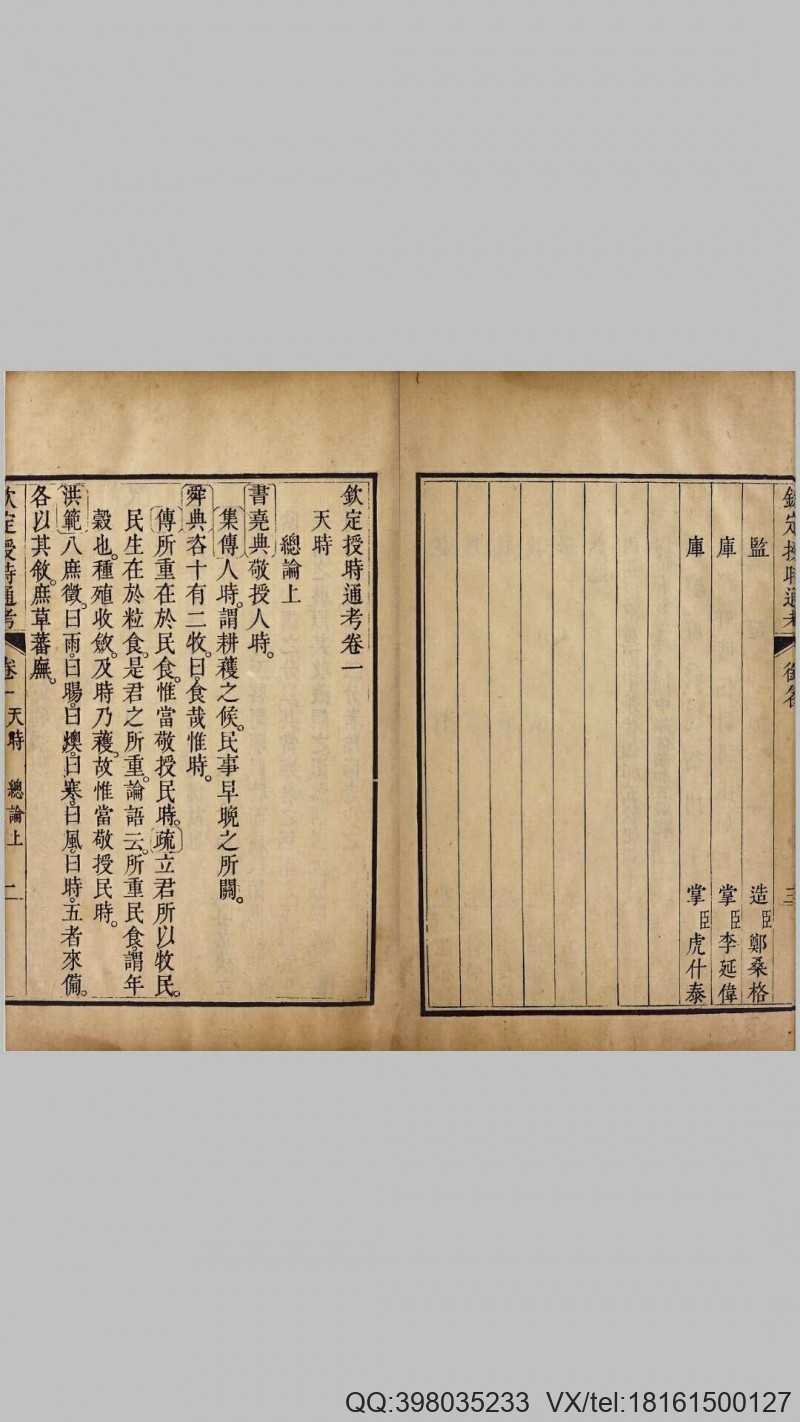 欽定授時通考 銜名 三
監 造臣鄭桑格
庫 掌臣李延偉
庫 掌臣虎什泰
欽定授時通考卷一
天時
總論上
書堯典敬授人時。
集傳人時。謂耕穫之候。民事早晚之所關。
舜典咨十有二牧。曰。食哉惟時。
傳所重在於民食。惟當敬授民時。疏立君所以牧民。
民生在於粒食。是君之所重。論語云。所重民食。謂年
穀也。種殖收斂。及時乃穫。故惟當敬授民時。
洪範八庶徵。曰雨。曰暘。曰燠。曰寒。曰風。曰時。五者來備。
各以其敘。庶草蕃廡。
欽定授時通考 卷一 天時 總論上 一
QQ:398035233 VX/tel:18161500127